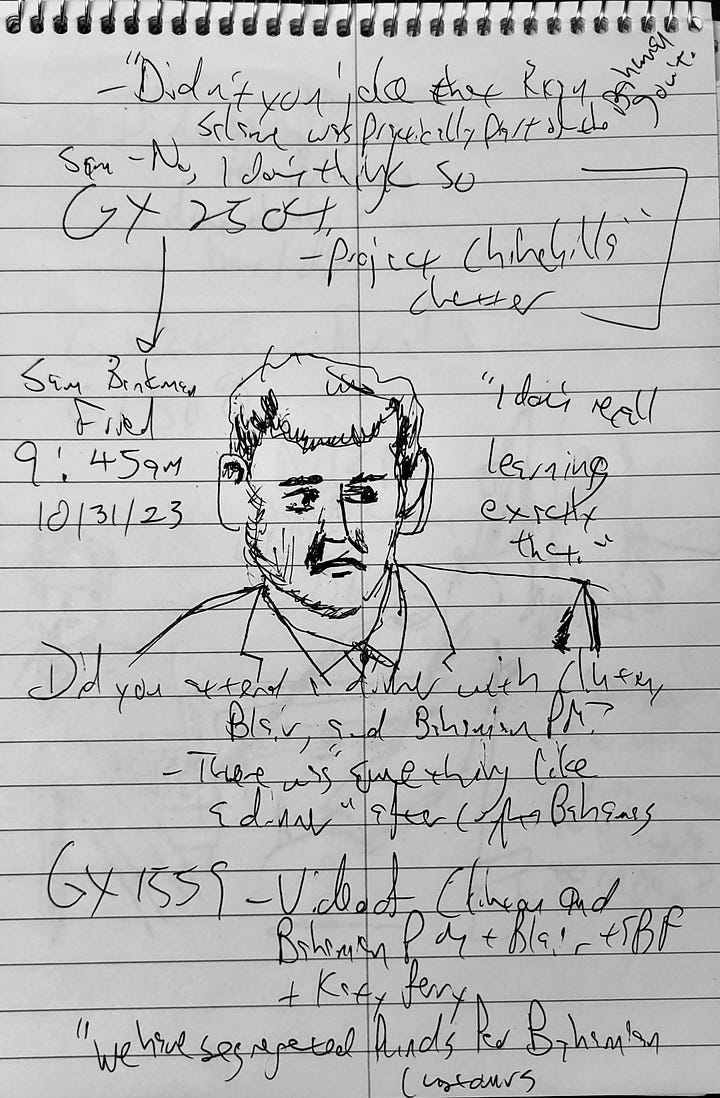 - "Didn't you joke that Ryan
Salame was practically part of the
Bahamas
gov't.
Sam - No, I don't think so
GX 2304
- Project Chinchilla"
chatter
Sam Bankman
Fried
9:45am
10/31/23
"I don't recall
learning
exactly
that."
Did you attend a dinner with Clinton,
Blair, and Bahamian PM?
- There was "something like
a dinner" after Crypto Bahamas
GX 1559 - Video of Clinton and
Bahamian PM + Blair + SBF
+ Katy Perry
"We have segregated funds for Bahamian
Customers